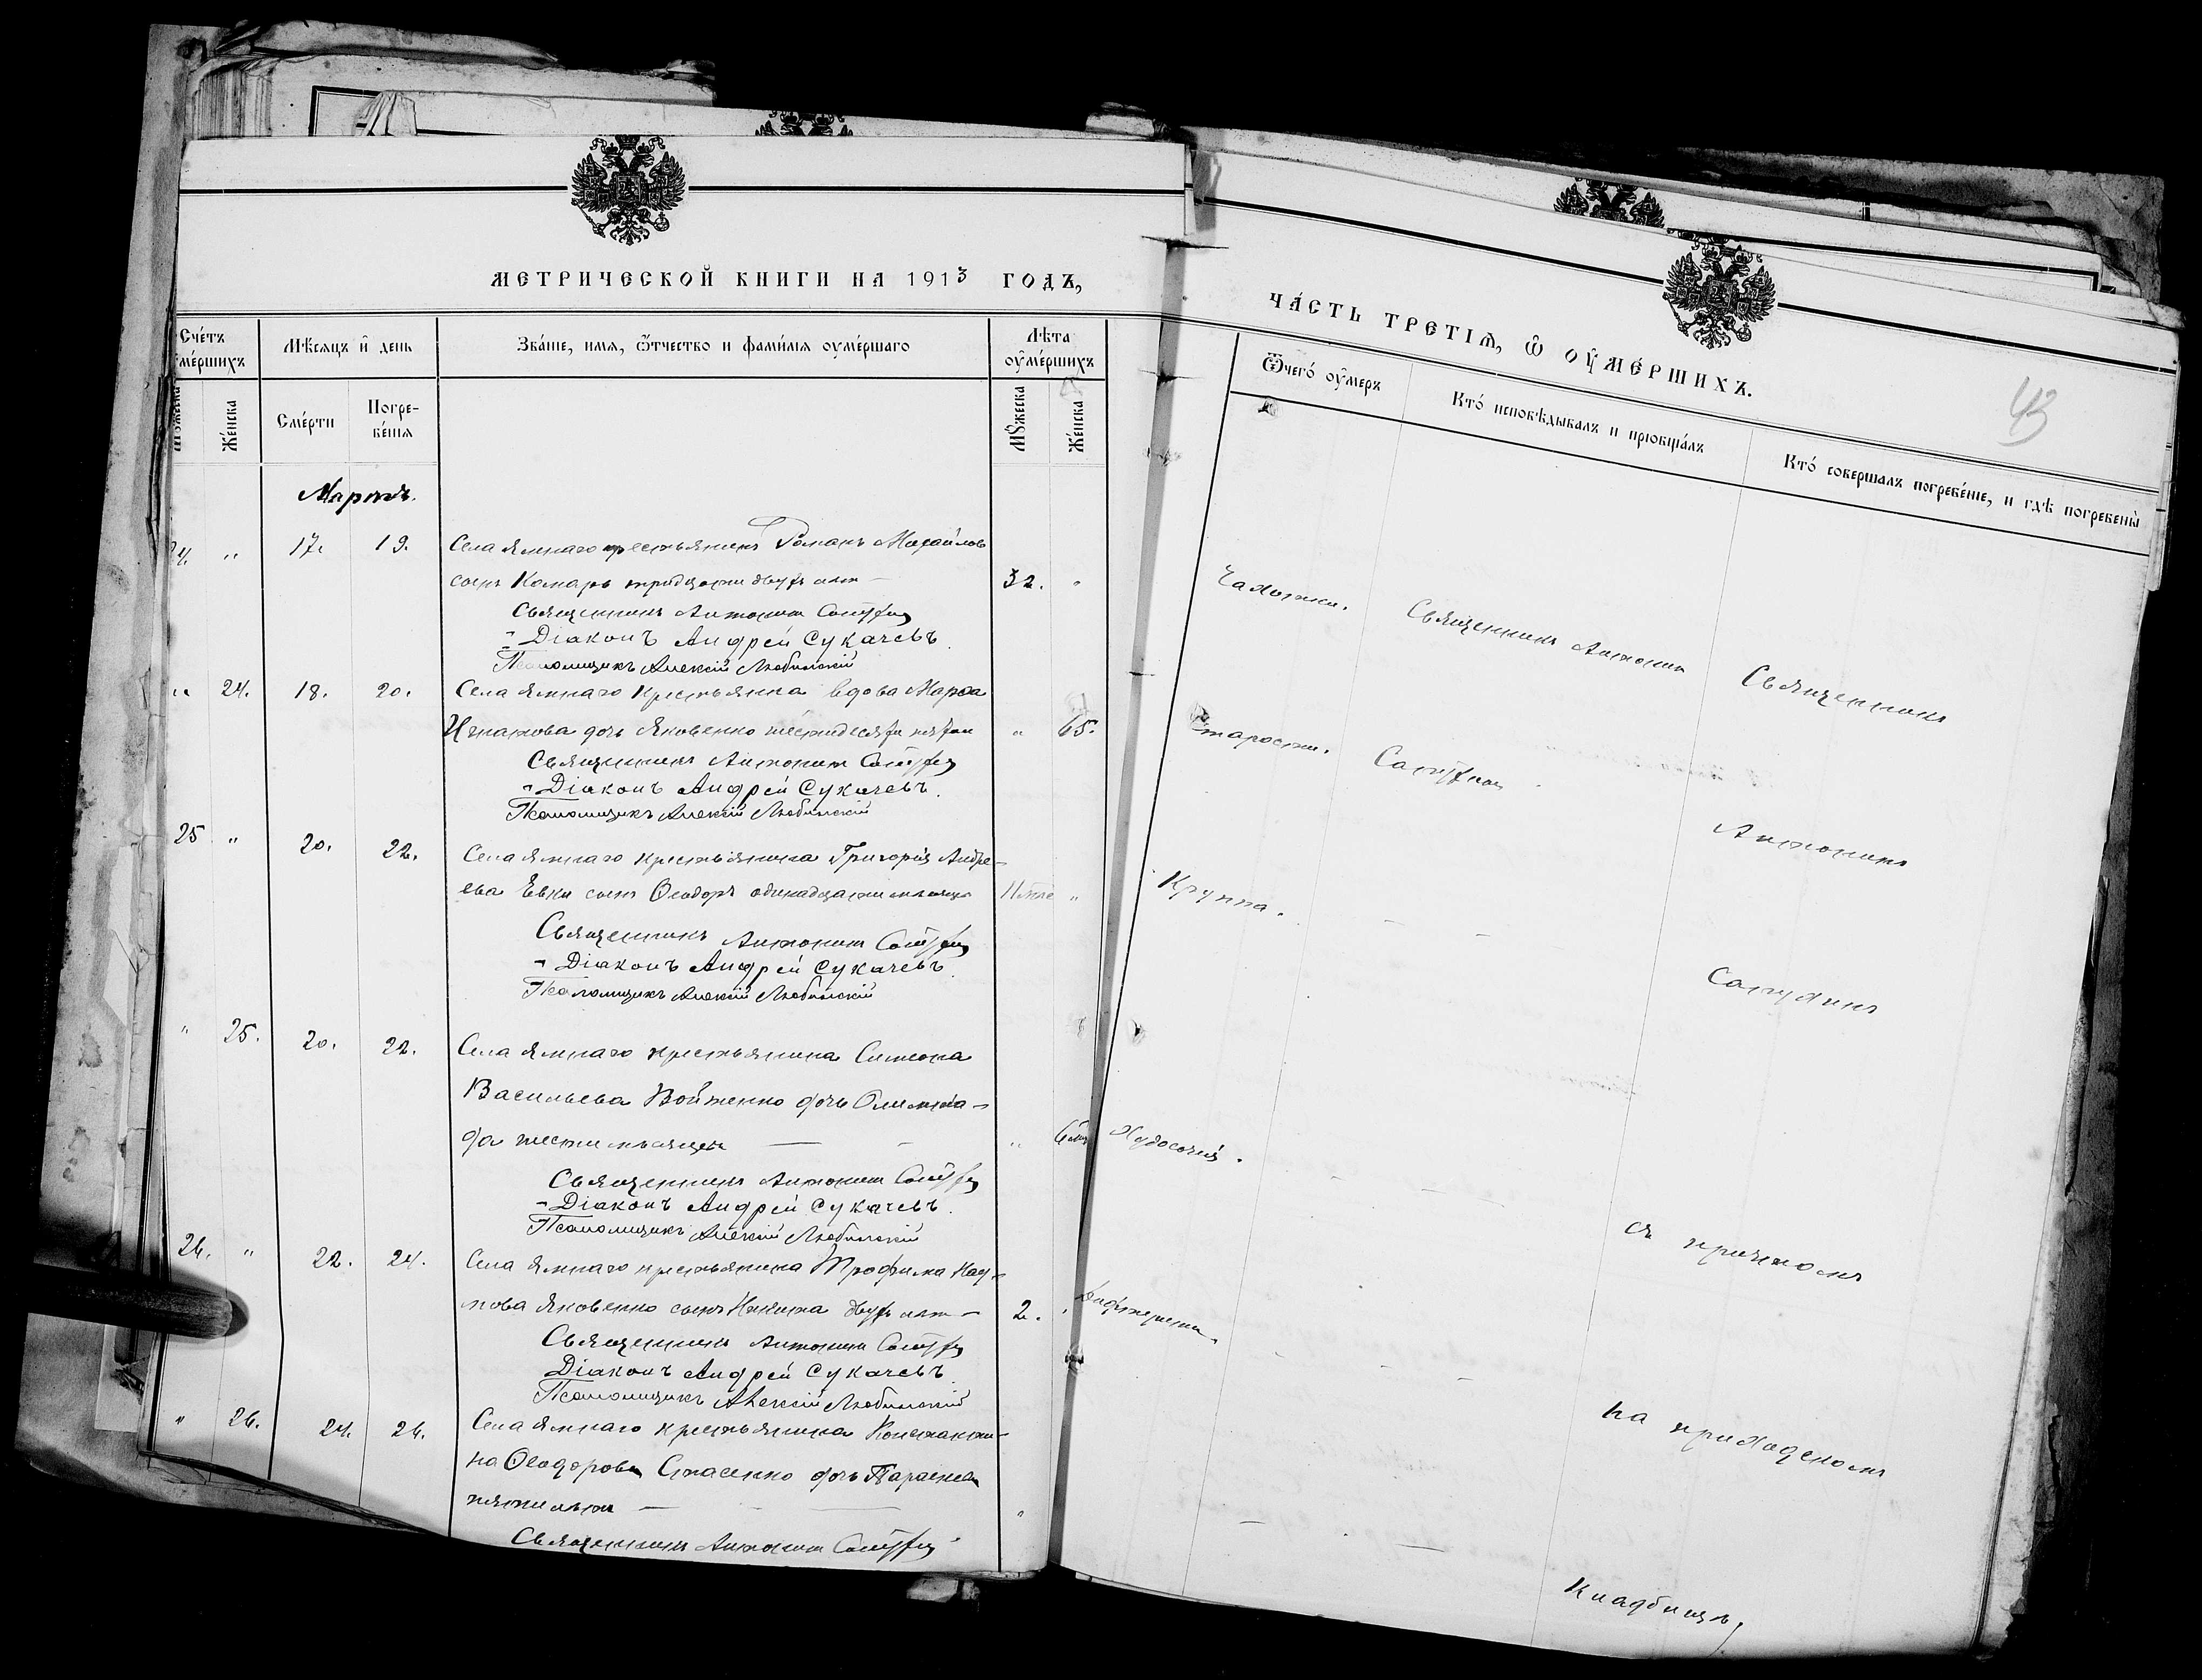 МЕТРИЧЕСКОЙ КНИГИ НА 1913 ГОДЪ,
Счетъ умершихъ
Мѣсяцъ и день
Званіе, имя, отчество и фамилія умершаго
Лѣта умершихъ
Мужеска
Женска
Смерти
Погребенія
Мужеска
Женска
Мартъ.
24. " 17. 19. Села Ямнаго крестьянинъ Романъ Михайловъ
сынъ Комаръ тридцати двухъ лѣтъ — 32. "
Священникъ Антонинъ
Діаконъ Андрей Сукачевъ.
Псаломщикъ Алексій Любинскій
" 24. 18. 20. Села Ямнаго крестьянка вдова Марѳа
Игнатова дочь Яковенко шестидесяти пяти " 65.
Священникъ Антонинъ
Діаконъ Андрей Сукачевъ.
Псаломщикъ Алексій Любинскій
25 " 20. 22. Села Ямнаго крестьянина Григорія Андре-
ева Евки сынъ Ѳеодоръ одинадцати мѣсяцевъ 11 "
Священникъ Антонинъ
Діаконъ Андрей Сукачевъ.
Псаломщикъ Алексій Любинскій
" 25. 20. 22. Села Ямнаго крестьянина Симеона
Васильева Войтенко дочь Олимпіа-
да шести мѣсяцевъ — " 6
Священникъ Антонинъ
Діаконъ Андрей Сукачевъ.
Псаломщикъ Алексій Любинскій
26. " 22. 24. Села Ямнаго крестьянина Трофима
Яковенко сынъ Никита двухъ лѣтъ — 2.
Священникъ Антонинъ
Діаконъ Андрей Сукачевъ.
Псаломщикъ Алексій Любинскій
" 26. 24. 26. Села Ямнаго крестьянина Константи-
на Ѳеодорова Стасенко дочь Параскева
пяти лѣтъ — "
Священникъ Антонинъ
ЧАСТЬ ТРЕТІЯ, Ѡ УМЕРШИХЪ.
43
Ѿчего умеръ
Кто исповѣдывалъ и пріобщалъ
Кто совершалъ погребеніе, и гдѣ погребены
Чахотки.
Священникъ Антонинъ
Священникъ
Старости.
Антонинъ
Круппа.
Худосочія.
съ причтомъ
Дифтерита.
на приходскомъ
кладбищѣ,